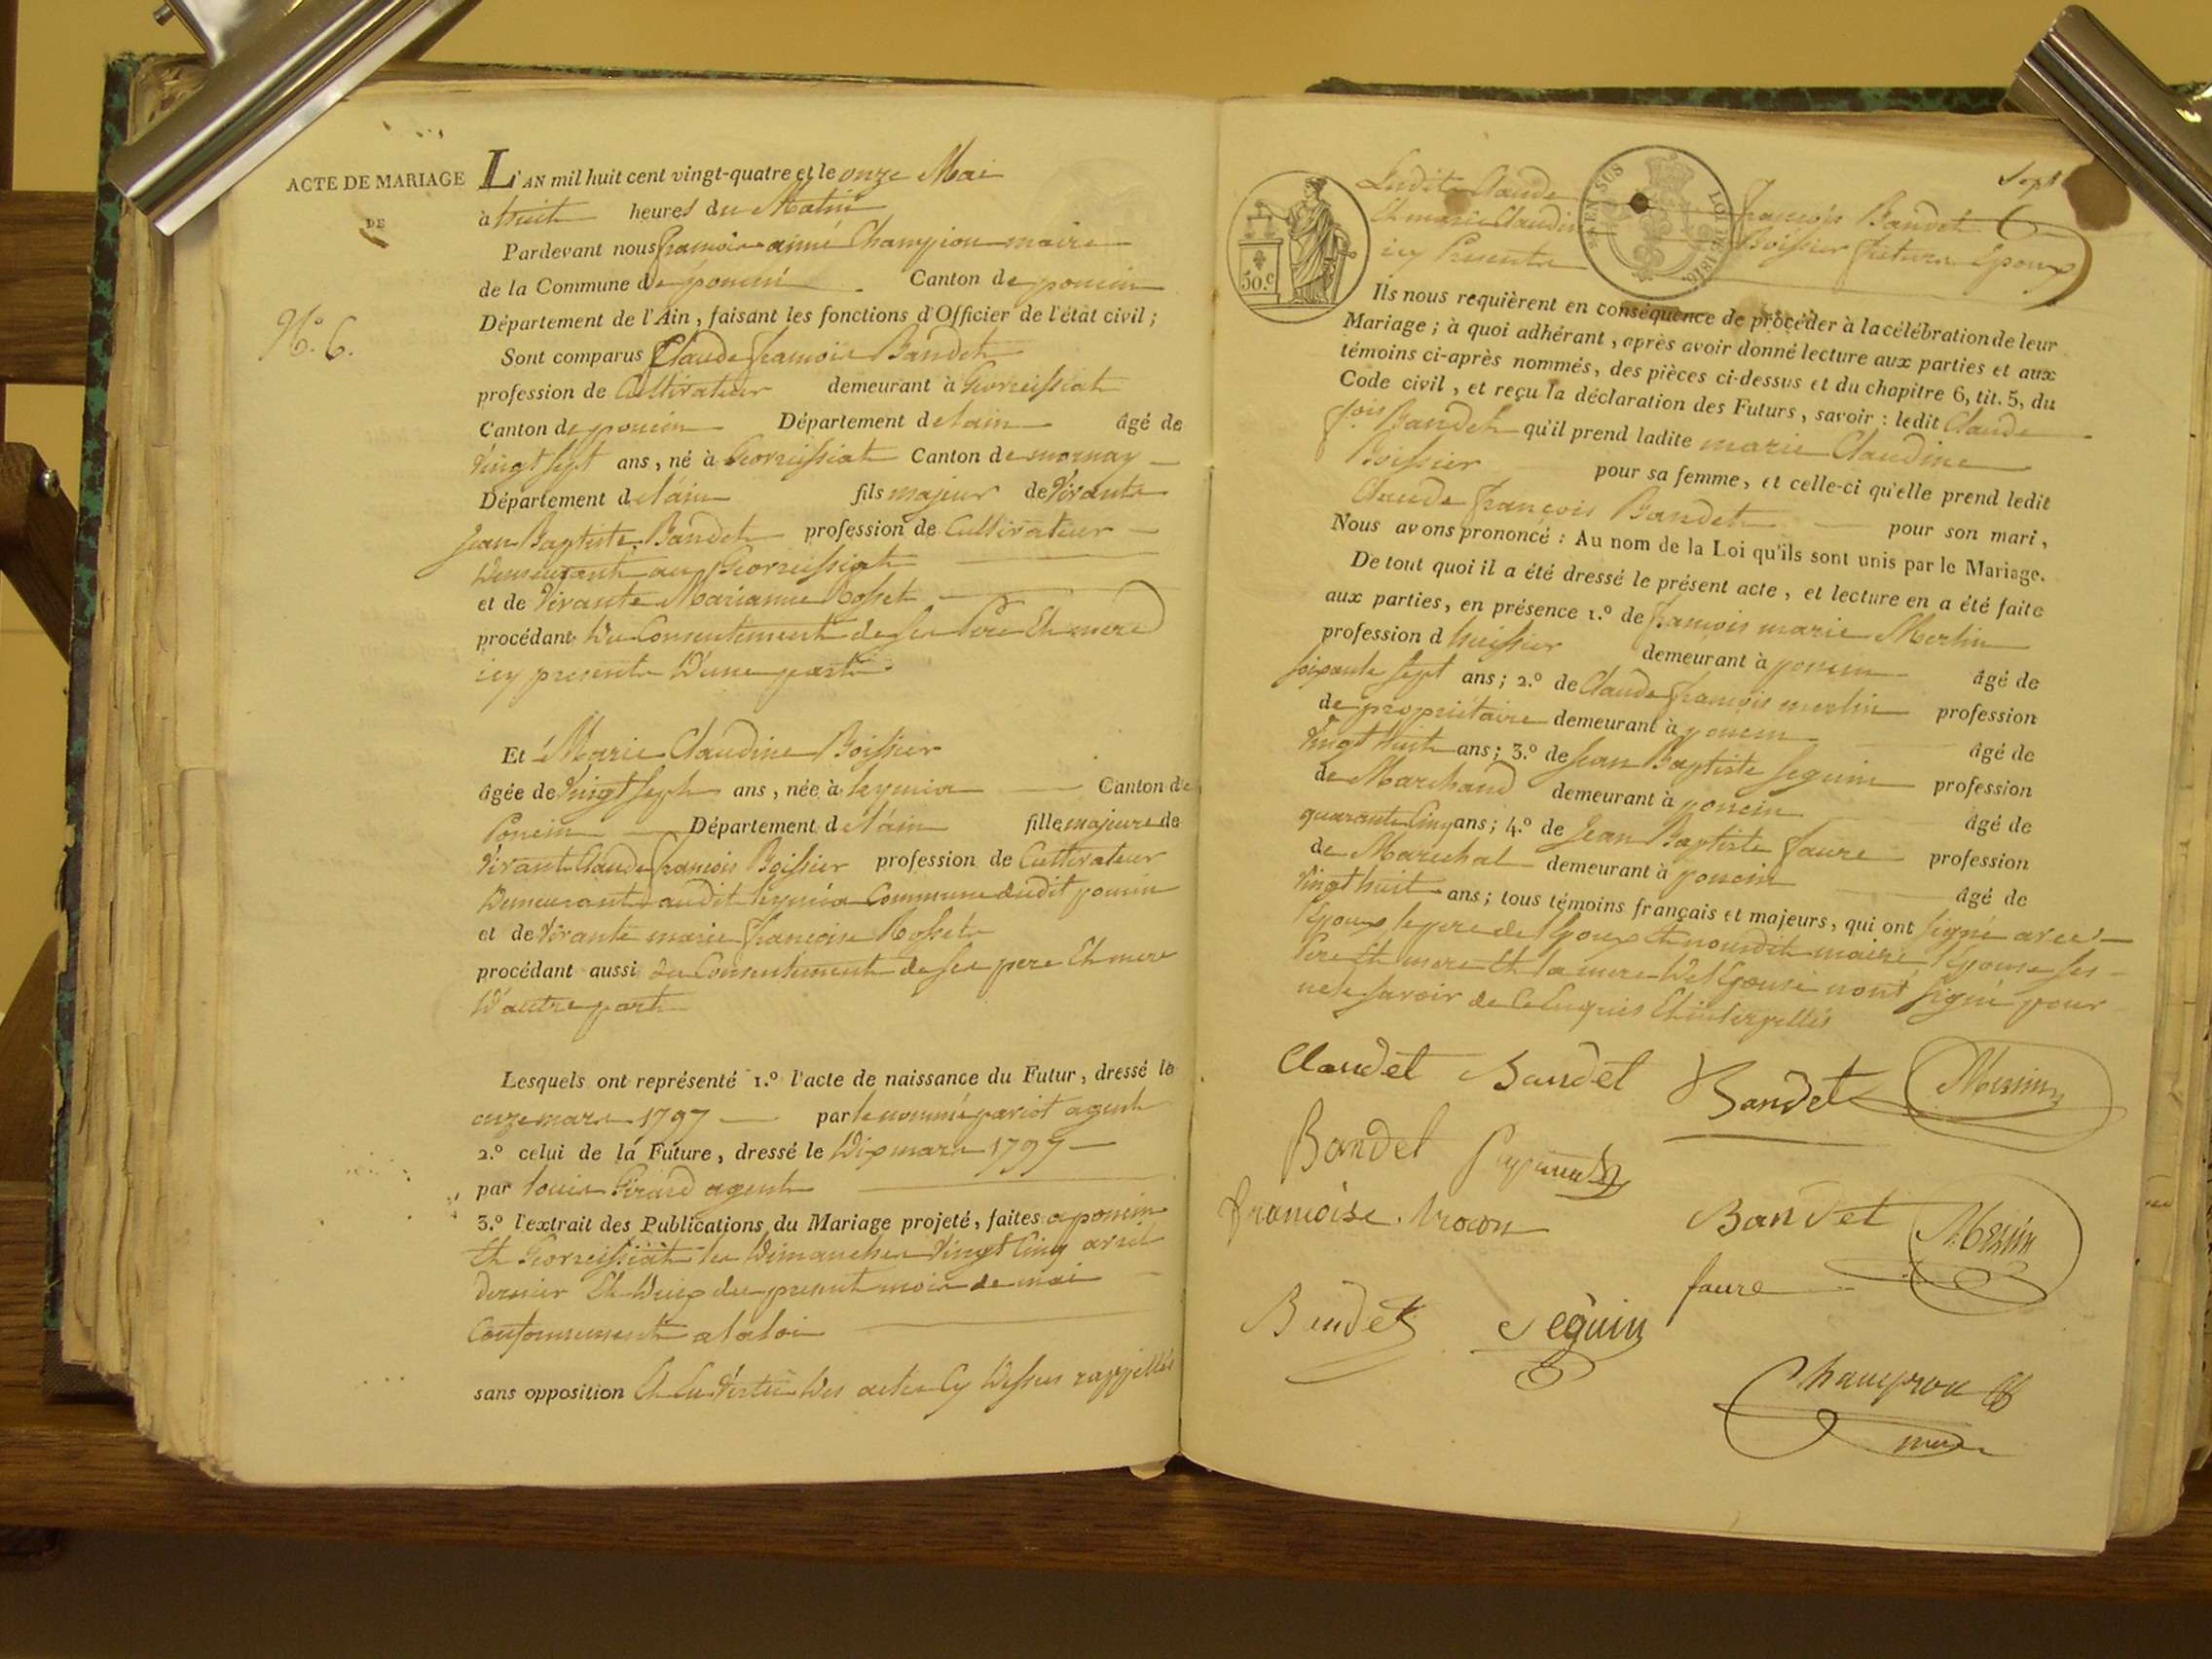 ACTE DE MARIAGE
DE
N.° 6.
L'AN mil huit cent vingt-quatre et le onze Mai
à huit heures du Matin
Pardevant nous françois aimé Champion maire
de la Commune de poncin Canton de poncin
Département de l'Ain, faisant les fonctions d'Officier de l'état civil;
Sont comparus Claude françois Bandet
profession de Cultivateur demeurant à
Canton de poncin Département de lain âgé de
Vingt sept ans, né à Canton de mornay
Département de l'ain fils majeur de Vivants
Jean Baptiste Bandet profession de Cultivateur
Demeurant au
et de Vivante Marianne Rosset
procédant Du Consentement de ses Pere Et mere
icy presents D'une part
Et Marie Claudine Boissier
âgée de Vingt sept ans, née à leymia Canton de
Poncin Département de l'ain fille majeure de
Vivant Claude françois Boissier profession de Cultivateur
Demeurant audit leymia Commune dudit poncin
et de Vivante marie françoise Rosset
procédant aussi du Consentement de ses pere Et mere
D'autre part
Lesquels ont représenté 1.° l'acte de naissance du Futur, dressé le
onze mars 1797 par le nommé pariot agent
2.° celui de la Future, dressé le Dix mars 1797
par louis Girard agent
3.° l'extrait des Publications du Mariage projeté, faites a poncin
Et les Dimanches Vingt Cinq avril
dernier Et Deux du present mois de mai
Conformement a la loi
sans opposition Et En Vertu Des actes Cy Dessus rappellés
Sept
Ledit Claude françois Bandet
Et marie Claudine Boissier futurs Epoux
icy Presents
50.c
EN SUS
LOI DE 1816.
Ils nous requièrent en conséquence de procéder à la célébration de leur
Mariage; à quoi adhérant, après avoir donné lecture aux parties et aux
témoins ci-après nommés, des pièces ci-dessus et du chapitre 6, tit. 5, du
Code civil, et reçu la déclaration des Futurs, savoir: ledit Claude
f.ois Bandet qu'il prend ladite marie Claudine
Boissier pour sa femme, et celle-ci qu'elle prend ledit
Claude françois Bandet pour son mari,
Nous avons prononcé: Au nom de la Loi qu'ils sont unis par le Mariage.
De tout quoi il a été dressé le présent acte, et lecture en a été faite
aux parties, en présence 1.° de françois marie Merlin
profession d huissier demeurant à poncin âgé de
soixante sept ans; 2.° de Claude françois merlin profession
de propriétaire demeurant à poncin âgé de
Vingt huit ans; 3.° de Jean Baptiste Seguin profession
de Marchand demeurant à poncin âgé de
quarante Cinq ans; 4.° de Jean Baptiste faure profession
de Marechal demeurant à poncin âgé de
Vingt huit ans; tous témoins français et majeurs, qui ont signé avec
l'Epoux le pere de l'Epoux Et nousdit maire l'Epouse ses
Pere Et mere Et la mere De l'Epouse n'ont signé pour
ne le savoir de Ce Enquis Et interpellés
Claudet Bandet Bandet Merlin
Bandel
françoise Bandet Merlin
faure
Bendet Séguin
Champion
maire